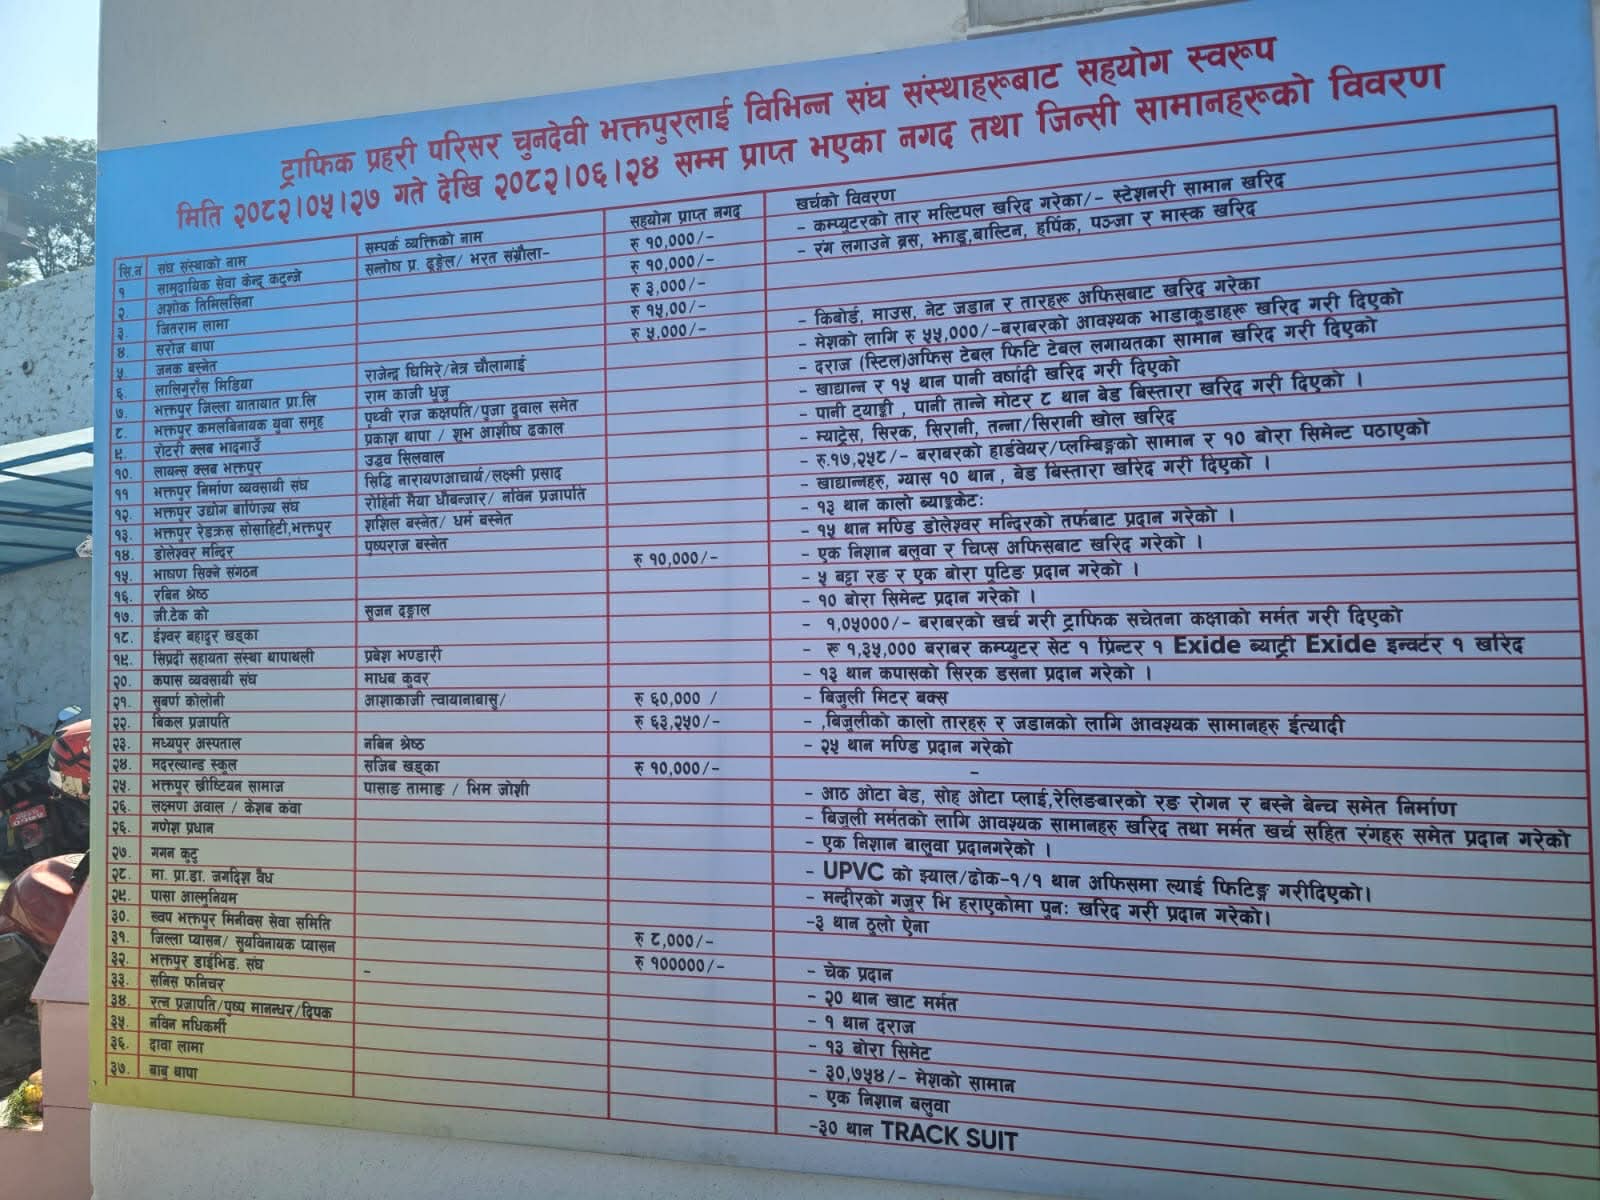 ट्राफिक प्रहरी परिसर चुनदेवी भक्तपुरलाई विभिन्न संघ संस्थाहरूबाट सहयोग स्वरूप
मिति २०८२।०५।२७ गते देखि २०८२।०६।२४ सम्म प्राप्त भएका नगद तथा जिन्सी सामानहरूको विवरण
सि.नं संघ संस्थाको नाम सम्पर्क व्यक्तिको नाम सहयोग प्राप्त नगद खर्चको विवरण
१ सामुदायिक सेवा केन्द्र कटुन्जे सन्तोष प्र. ढुङ्गेल/ भरत संग्रौला- रु १०,०००/- - कम्प्युटरको तार मल्टिपल खरिद गरेका/- स्टेशनरी सामान खरिद
२. अशोक तिमिलसिना रु १०,०००/- - रंग लगाउने ब्रस, झाडु,बाल्टिन, हर्पिक, पञ्जा र मास्क खरिद
३. जितराम लामा रु ३,०००/-
४. सरोज थापा रु १५,00/-
५. जनक बस्नेत रु ५,०००/- - किबोर्ड, माउस, नेट जडान र तारहरू अफिसबाट खरिद गरेका
६. लालिगुराँस मिडिया राजेन्द्र घिमिरे/नेत्र चौलागाई - मेशको लागि रु ५५,०००/-बराबरको आवश्यक भाडाकुडाहरू खरिद गरी दिएको
७. भक्तपुर जिल्ला यातायात प्रा.लि राम काजी धुजु - दराज (स्टिल)अफिस टेबल फिटि टेबल लगायतका सामान खरिद गरी दिएको
८. भक्तपुर कमलबिनायक युवा समूह पृथ्वी राज कक्षपति/पुजा दुवाल समेत - खाद्यान्न र १५ थान पानी वर्षादी खरिद गरी दिएको
९. रोटरी क्लब भादगाउँ प्रकाश थापा / शुभ आशीष ढकाल - पानी ट्याङ्की , पानी तान्ने मोटर ८ थान बेड बिस्तारा खरिद गरी दिएको ।
१०. लायन्स क्लब भक्तपुर उद्धव सिलवाल - म्याट्रेस, सिरक, सिरानी, तन्ना/सिरानी खोल खरिद
११ भक्तपुर निर्माण व्यवसायी संघ सिद्धि नारायणआचार्य/लक्ष्मी प्रसाद - रु.१७,२५८/- बराबरको हार्डवेयर/प्लम्बिङ्गको सामान र १० बोरा सिमेन्ट पठाएको
१२. भक्तपुर उद्योग बाणिज्य संघ रोहिनी मैया धौबन्जार/ नविन प्रजापति - खाद्यान्नहरु, ग्यास १० थान , बेड बिस्तारा खरिद गरी दिएको ।
१३. भक्तपुर रेडक्रस सोसाहिटी,भक्तपुर शशिल बस्नेत/ धर्म बस्नेत - १३ थान कालो ब्याङ्केटः
१४. डोलेश्वर मन्दिर पुष्पराज बस्नेत - १५ थान मण्डि डोलेश्वर मन्दिरको तर्फबाट प्रदान गरेको ।
१५. भाषण सिक्ने संगठन रु १०,०००/- - एक निशान बलुवा र चिप्स अफिसबाट खरिद गरेको ।
१६. रबिन श्रेष्ठ - ५ बट्टा रङ र एक बोरा पुटिङ प्रदान गरेको ।
१७. जी.टेक को सुजन दङ्गाल - १० बोरा सिमेन्ट प्रदान गरेको ।
१८. ईश्वर बहादुर खड्का - १,०५०००/- बराबरको खर्च गरी ट्राफिक सचेतना कक्षाको मर्मत गरी दिएको
१९. सिप्रदी सहायता संस्था थापाथली प्रबेश भण्डारी - रू १,३५,००० बराबर कम्प्युटर सेट १ प्रिन्टर १ Exide ब्याट्री Exide इन्वर्टर १ खरिद
२०. कपास व्यवसायी संघ माधब कुवर - १३ थान कपासको सिरक डसना प्रदान गरेको ।
२१. सुबर्ण कोलोनी आशाकाजी त्वायानाबासु/ रु ६०,००० / - बिजुली मिटर बक्स
२२. बिकल प्रजापति रु ६३,२५०/- - ,बिजुलीको कालो तारहरु र जडानको लागि आवश्यक सामानहरु ईत्यादी
२३. मध्यपुर अस्पताल नबिन श्रेष्ठ - २५ थान मण्डि प्रदान गरेको
२४. मदरल्याण्ड स्कुल सजिब खड्का रु १०,०००/- -
२५. भक्तपुर ख्रीष्टियन सामाज पासाङ तामाङ / भिम जोशी - आठ ओटा बेड, सोह्र ओटा प्लाई,रेलिङबारको रङ रोगन र बस्ने बेन्च समेत निर्माण
२६. लक्ष्मण अवाल / केशब कंवा - बिजुली मर्मतको लागि आवश्यक सामानहरु खरिद तथा मर्मत खर्च सहित रंगहरु समेत प्रदान गरेको
२६. गणेश प्रधान - एक निशान बालुवा प्रदानगरेको ।
२७. गगन कुटु
२८. मा. प्रा.डा. जगदिश वैध - UPVC को झ्याल/ढोक-१/१ थान अफिसमा ल्याई फिटिङ्ग गरीदिएको।
२९. पासा आल्मुनियम - मन्दीरको गजुर भि हराएकोमा पुनः खरिद गरी प्रदान गरेको।
३०. ख्वप भक्तपुर मिनीबस सेवा समिति -३ थान ठुलो ऐना
३१. जिल्ला प्यासन/ सुर्यविनायक प्यासन रु ८,०००/-
३२. भक्तपुर डाईभिड. संघ रु १०००००/- - चेक प्रदान
३३. सनिस फनिचर - - २० थान खाट मर्मत
३४. रत्न प्रजापति/पुष्प मानन्धर/दिपक - १ थान दराज
३५. नविन मधिकर्मी - १३ बोरा सिमेट
३६. दावा लामा - ३०,७५४/- मेशको सामान
३७. बाबु थापा - एक निशान बलुवा
-३० थान TRACK SUIT